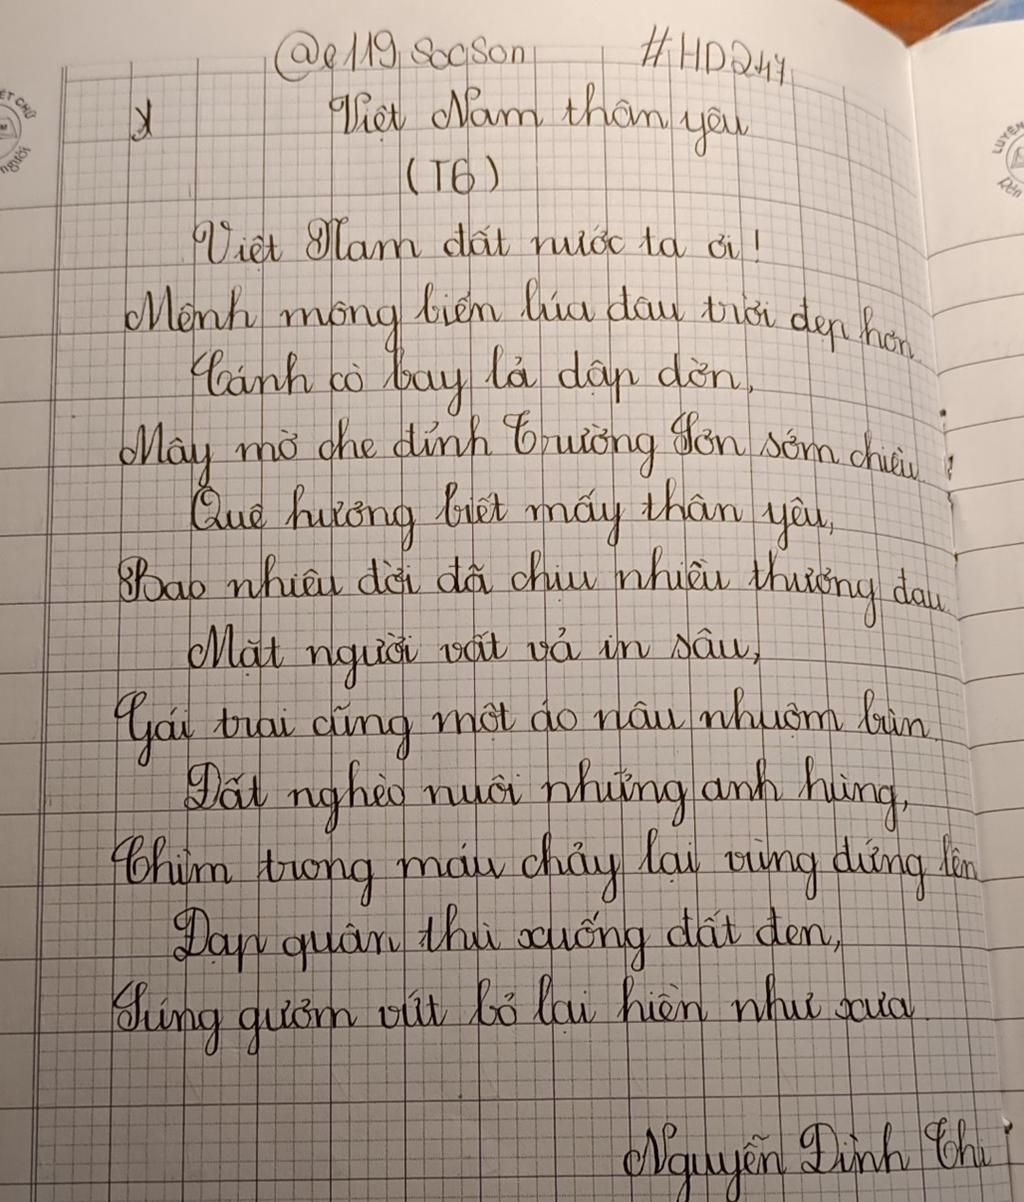 @e119.socson #HD247
Việt Nam thân yêu
(T6)
Việt Nam đất nước ta ơi!
Mênh mông biển lúa đâu trời đẹp hơn
Cánh cò bay lả dập dờn,
Mây mờ che đỉnh Trường Sơn sớm chiều
Quê hương biết mấy thân yêu,
Bao nhiêu đời đã chịu nhiều thương đau
Mặt người vất vả in sâu,
Gái trai cũng một áo nâu nhuộm bùn
Đất nghèo nuôi những anh hùng,
Chìm trong máu chảy lại vùng đứng lên
Đạp quân thù xuống đất đen,
Súng gươm vứt bỏ lại hiền như xưa
Nguyễn Đình Thi